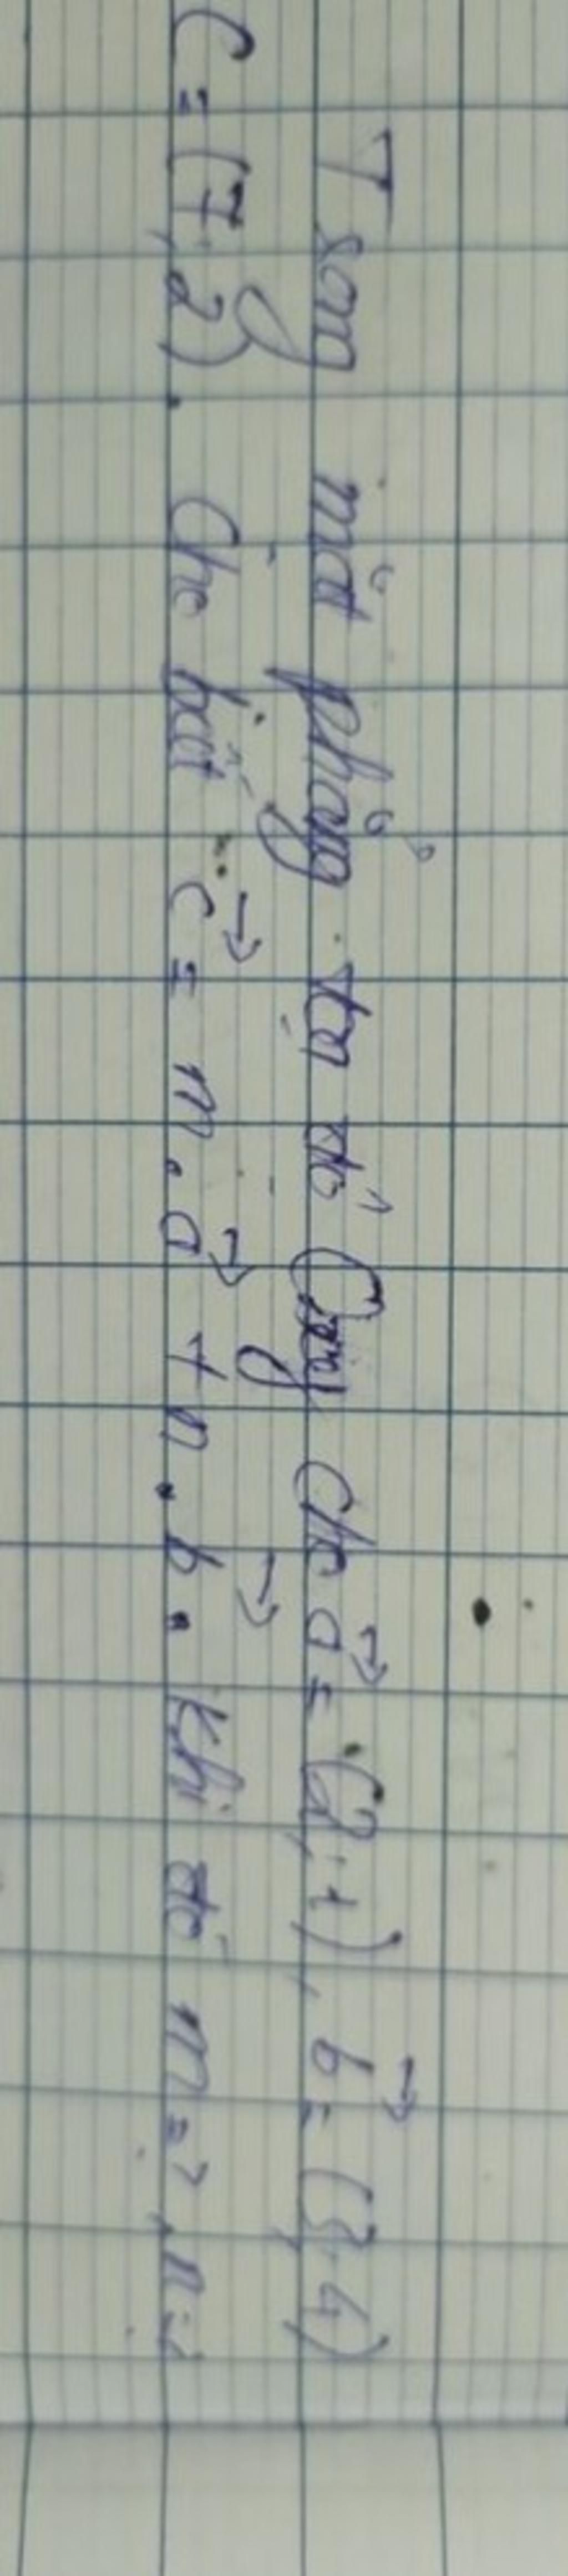 Trong mặt phẳng tọa độ Oxy cho a→ = (2;1), b→ = (3,4)
c = (7,2). Cho biết c→ = m.a→ + n.b→. khi đó m=?, n=?